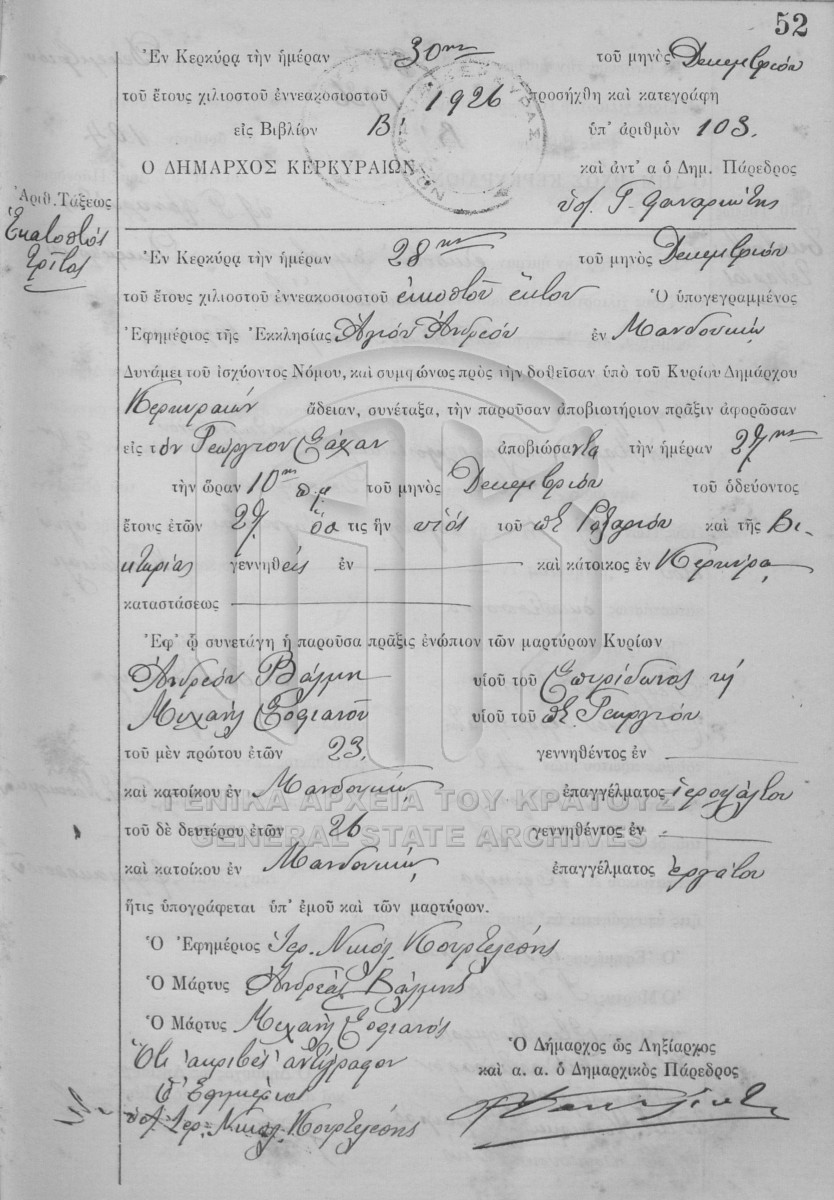 52
Ἐν Κερκύρᾳ τὴν ἡμέραν 30ην τοῦ μηνὸς Δεκεμβρίου
τοῦ ἔτους χιλιοστοῦ ἐννεακοσιοστοῦ 1926 προσήχθη καὶ κατεγράφη
εἰς Βιβλίον Β! ὑπ' ἀριθμὸν 103.
Ο ΔΗΜΑΡΧΟΣ ΚΕΡΚΥΡΑΙΩΝ καὶ ἀντ' α ὁ Δημ. Πάρεδρος
Γ.
Ἀριθ. Τάξεως
Ἑκατοστός
τρίτος
Ἐν Κερκύρᾳ τὴν ἡμέραν 28ην τοῦ μηνὸς Δεκεμβρίου
τοῦ ἔτους χιλιοστοῦ ἐννεακοσιοστοῦ εἰκοστοῦ ἕκτου Ὁ ὑπογεγραμμένος
Ἐφημέριος τῆς Ἐκκλησίας Ἁγίου Ἀνδρέου ἐν Μανδουκίῳ
Δυνάμει τοῦ ἰσχύοντος Νόμου, καὶ συμφώνως πρὸς τὴν δοθεῖσαν ὑπὸ τοῦ Κυρίου Δημάρχου
Κερκυραίων ἄδειαν, συνέταξα, τὴν παροῦσαν ἀποβιωτήριον πρᾶξιν ἀφορῶσαν
εἰς τὸν Γεώργιον ἀποβιώσαντα τὴν ἡμέραν 27ην
τὴν ὥραν 10ην π.μ. τοῦ μηνὸς Δεκεμβρίου τοῦ ὁδεύοντος
ἔτους ἐτῶν 27. ὅστις ἦν υἱὸς τοῦ καὶ τῆς Βι-
κτωρίας γεννηθεὶς ἐν καὶ κάτοικος ἐν Κερκύρᾳ
καταστάσεως
Ἐφ' ᾧ συνετάγη ἡ παροῦσα πρᾶξις ἐνώπιον τῶν μαρτύρων Κυρίων
Ἀνδρέου Βάλμη υἱοῦ τοῦ Σπυρίδωνος
Μιχαὴλ Σοφιανοῦ υἱοῦ τοῦ Γεωργίου
τοῦ μὲν πρώτου ἐτῶν 23. γεννηθέντος ἐν
καὶ κατοίκου ἐν Μανδουκίῳ ἐπαγγέλματος ἱεροψάλτου
ΓΕΝΙΚΑ ΑΡΧΕΙΑ ΤΟΥ ΚΡΑΤΟΥΣ
τοῦ δὲ δευτέρου ἐτῶν 26 γεννηθέντος ἐν
GENERAL STATE ARCHIVES
καὶ κατοίκου ἐν Μανδουκίῳ ἐπαγγέλματος ἐργάτου
ἥτις ὑπογράφεται ὑπ' ἐμοῦ καὶ τῶν μαρτύρων.
Ὁ Ἐφημέριος Ἱερ. Νικόλ. Κουρτελέσης
Ὁ Μάρτυς Ἀνδρέας Βάλμης
Ὁ Μάρτυς Μιχαὴλ Σοφιανός
Ὅτι ἀκριβὲς ἀντίγραφον
Ὁ Ἐφημέριος
Ἱερ. Νικόλ. Κουρτελέσης
Ὁ Δήμαρχος ὡς Ληξίαρχος
καὶ α. α. ὁ Δημαρχικὸς Πάρεδρος